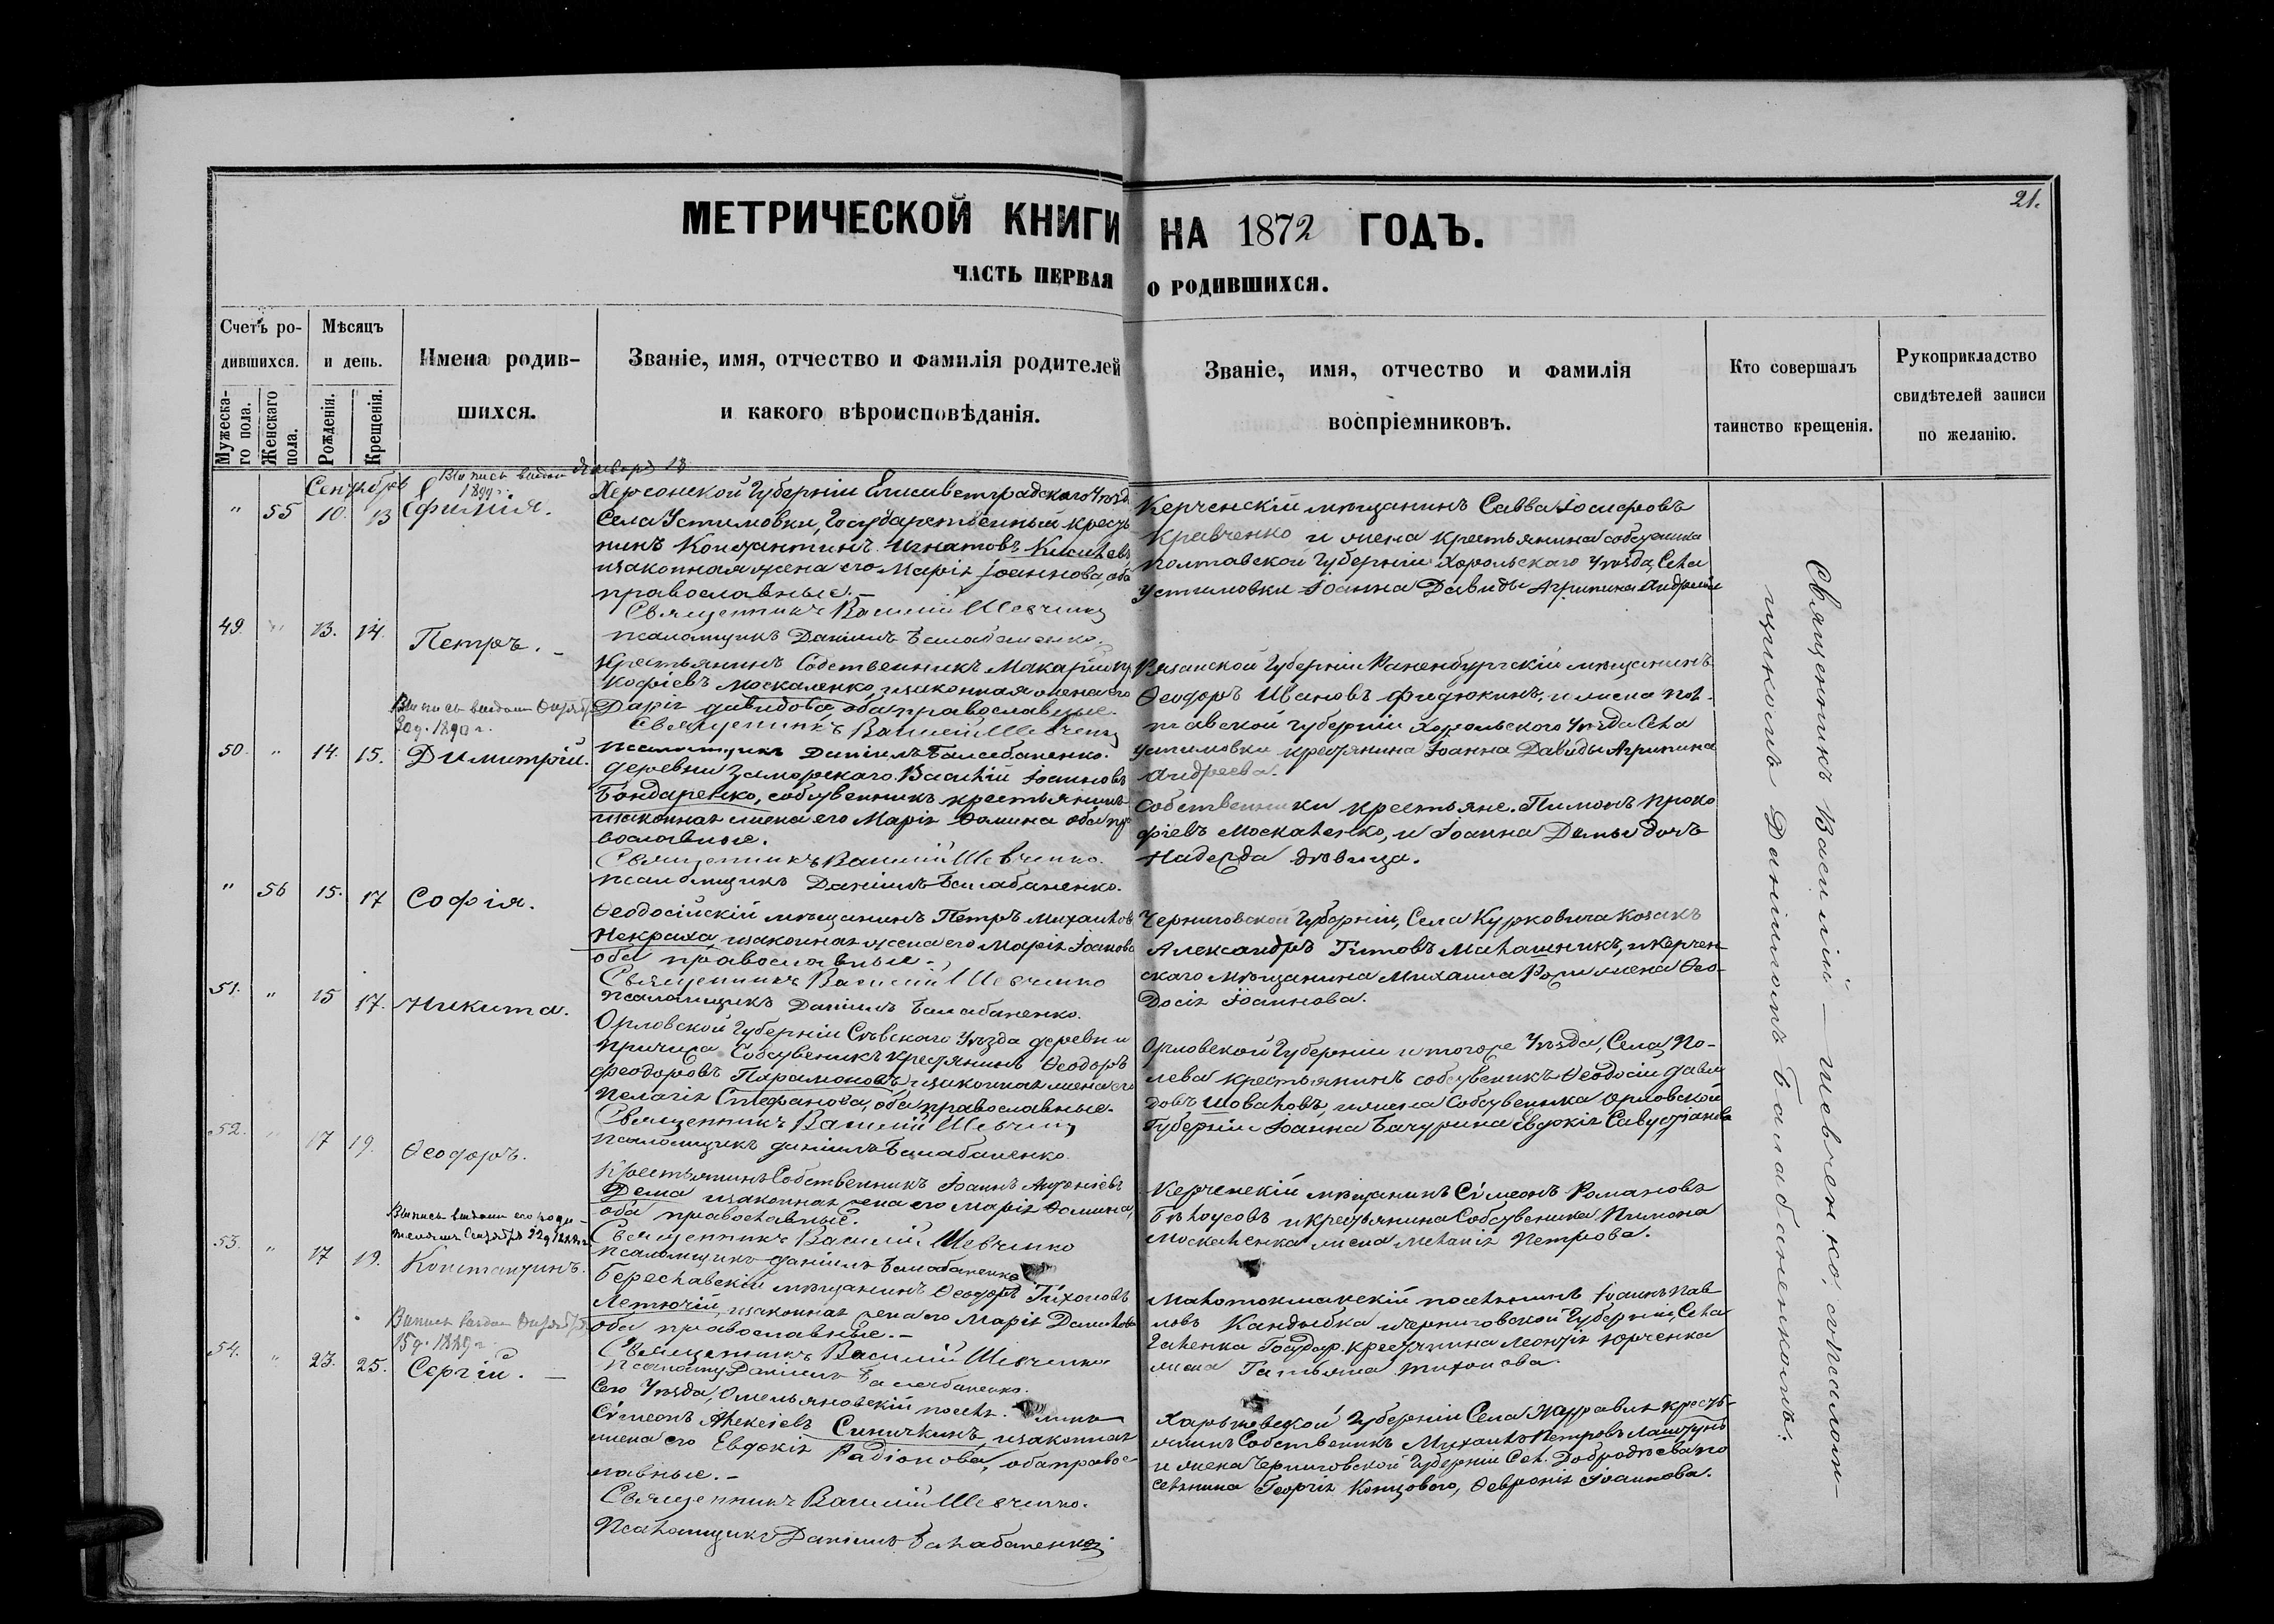 21.
МЕТРИЧЕСКОЙ КНИГИ НА 1872 ГОДЪ.
ЧАСТЬ ПЕРВАЯ О РОДИВШИХСЯ.
Счетъ ро-
дившихся.
Мужеска-
го пола.
Женскаго
пола.
Мѣсяцъ
и день.
Рожденія.
Крещенія.
Имена родив-
шихся.
Званіе, имя, отчество и фамилія родителей
и какого вѣроисповѣданія.
Званіе, имя, отчество и фамилія
воспріемниковъ.
Кто совершалъ
таинство крещенія.
Рукоприкладство
свидѣтелей записи
по желанію.
Сентябрь
" 55 10. 13
Херсонской Губерніи Елисаветградскаго Уѣзда
Села Устимовки, Государственный кресть
нинъ Константинъ Игнатовъ
изаконная жена его Марія Іоаннова, оба
православные.-
Священникъ Василій Шевченко
Псаломщикъ Даніилъ Балабаненко.
Керченскій мѣщанинъ Савва Іосифовъ
Кравченко и жена крестьянина собственика
Полтавской Губерніи Хорольскаго Уѣзда, Села
Устимовки Іоанна Давиды Агрипина Андреева
49. " 13. 14. Петръ.-
Крестьянинъ Собственникъ Макарій Про
кофіевъ Москаленко, изаконная жена его
Дарія Давидова, оба православные.
Священникъ Василій Шевченко
Псаломщикъ Даніилъ Балабаненко.
Рязанской Губерніи Раненбургскій мѣщанинъ
Ѳеодоръ Ивановъ Федюкинъ, и жена Пол-
тавской Губерніи Хорольскаго Уѣзда Села
Устимовки крестянина Іоанна Давиды Агрипина
Андреева.
Выпись выдана
30 д. 1890 г.
50. " 14. 15. Димитрій.
деревни Заморскаго Василій Іоанновъ
Бондаренко, собственникъ крестьянинъ
изаконная жена его Марія Ѳомина оба пра
вославные.
Священникъ Василій Шевченко.
Псаломщикъ Даніилъ Балабаненко.
Собственники крестьяне. Пимонъ Проко
фіевъ Москаленко, и Іоанна Демы дочь
Надежда дѣвица.
" 56 15. 17 Софія.
Ѳеодосійскій мѣщанинъ Петръ Михаиловъ
Некраха, изаконная жена его Марія Іоанова
оба православные.-
Священникъ Василій Шевченко
Псаломщикъ Даніилъ Балабаненко.
Черниговской Губерніи, Села Курковича козакъ
Александръ Титовъ Малашникъ, и керчен-
скаго мѣщанина Михаила жена Ѳео-
досія Іоаннова.
51. " 15 17. Никита.
Орловской Губерніи Сѣвскаго Уѣзда деревни
Собственикъ крестянинъ Ѳеодоръ
Ѳеодоровъ Парамоновъ, изаконная жена его
Пелагія Стефанова, оба православные.
Священникъ Василій Шевченко
Псаломщикъ Даніилъ Балабаненко.
Орловской Губерніи итогоже Уѣзда, Села По-
лева крестьянинъ собственикъ Ѳеодосій Дави
довъ Шоваловъ, и жена Собственика Орловской
Губерніи Іоанна Бачурина Евдокія Савустіанова
52. " 17 19. Ѳеодоръ.
Крестьянинъ Собственникъ Іоаннъ Антоніевъ
Дема изаконная жена его Марія Ѳомина,
оба православные.
Священникъ Василій Шевченко
Псаломщикъ Даніилъ Балабаненко
Керченскій мѣщанинъ Сѵмеонъ Романовъ
Бѣлоусовъ и крестьянина Собственика Пимона
Москаленка жена Меланія Петрова.
53. " 17 19. Константинъ.
Береславскій мѣщанинъ Ѳеодоръ Тихоновъ
Летючій, изаконная жена его Марія
оба православные.-
Священникъ Василій Шевченко
Псаломщ Даніилъ Балабаненко.
Малотокмакскій поселянинъ Іоаннъ Пав
ловъ Кандыбка и Черниговской Губерніи, Села
Государ. крестянина Леонтія Юрченка
жена Татьяна Тихонова.
Выпись выдана
15 д. 1889 г.
54. " 23. 25. Сергій.-
Сего Уѣзда, Омельяновскій посел
Сѵмеонъ Алексіевъ Синичкинъ, изаконная
жена его Евдокія Радіонова, оба правос-
лавные.-
Священникъ Василій Шевченко.
Псаломщикъ Даніилъ Балабаненко
Харьковской Губерніи Села кресть-
янинъ Собственикъ Михаилъ Петровъ
и жена Черниговской Губерніи Сел. Добродѣева по
селянина Георгія Концового, Ѳевронія Іоаннова.
Священникъ Василій — Шевченко, съ псалом-
щикомъ Даніиломъ Балабаненкомъ.